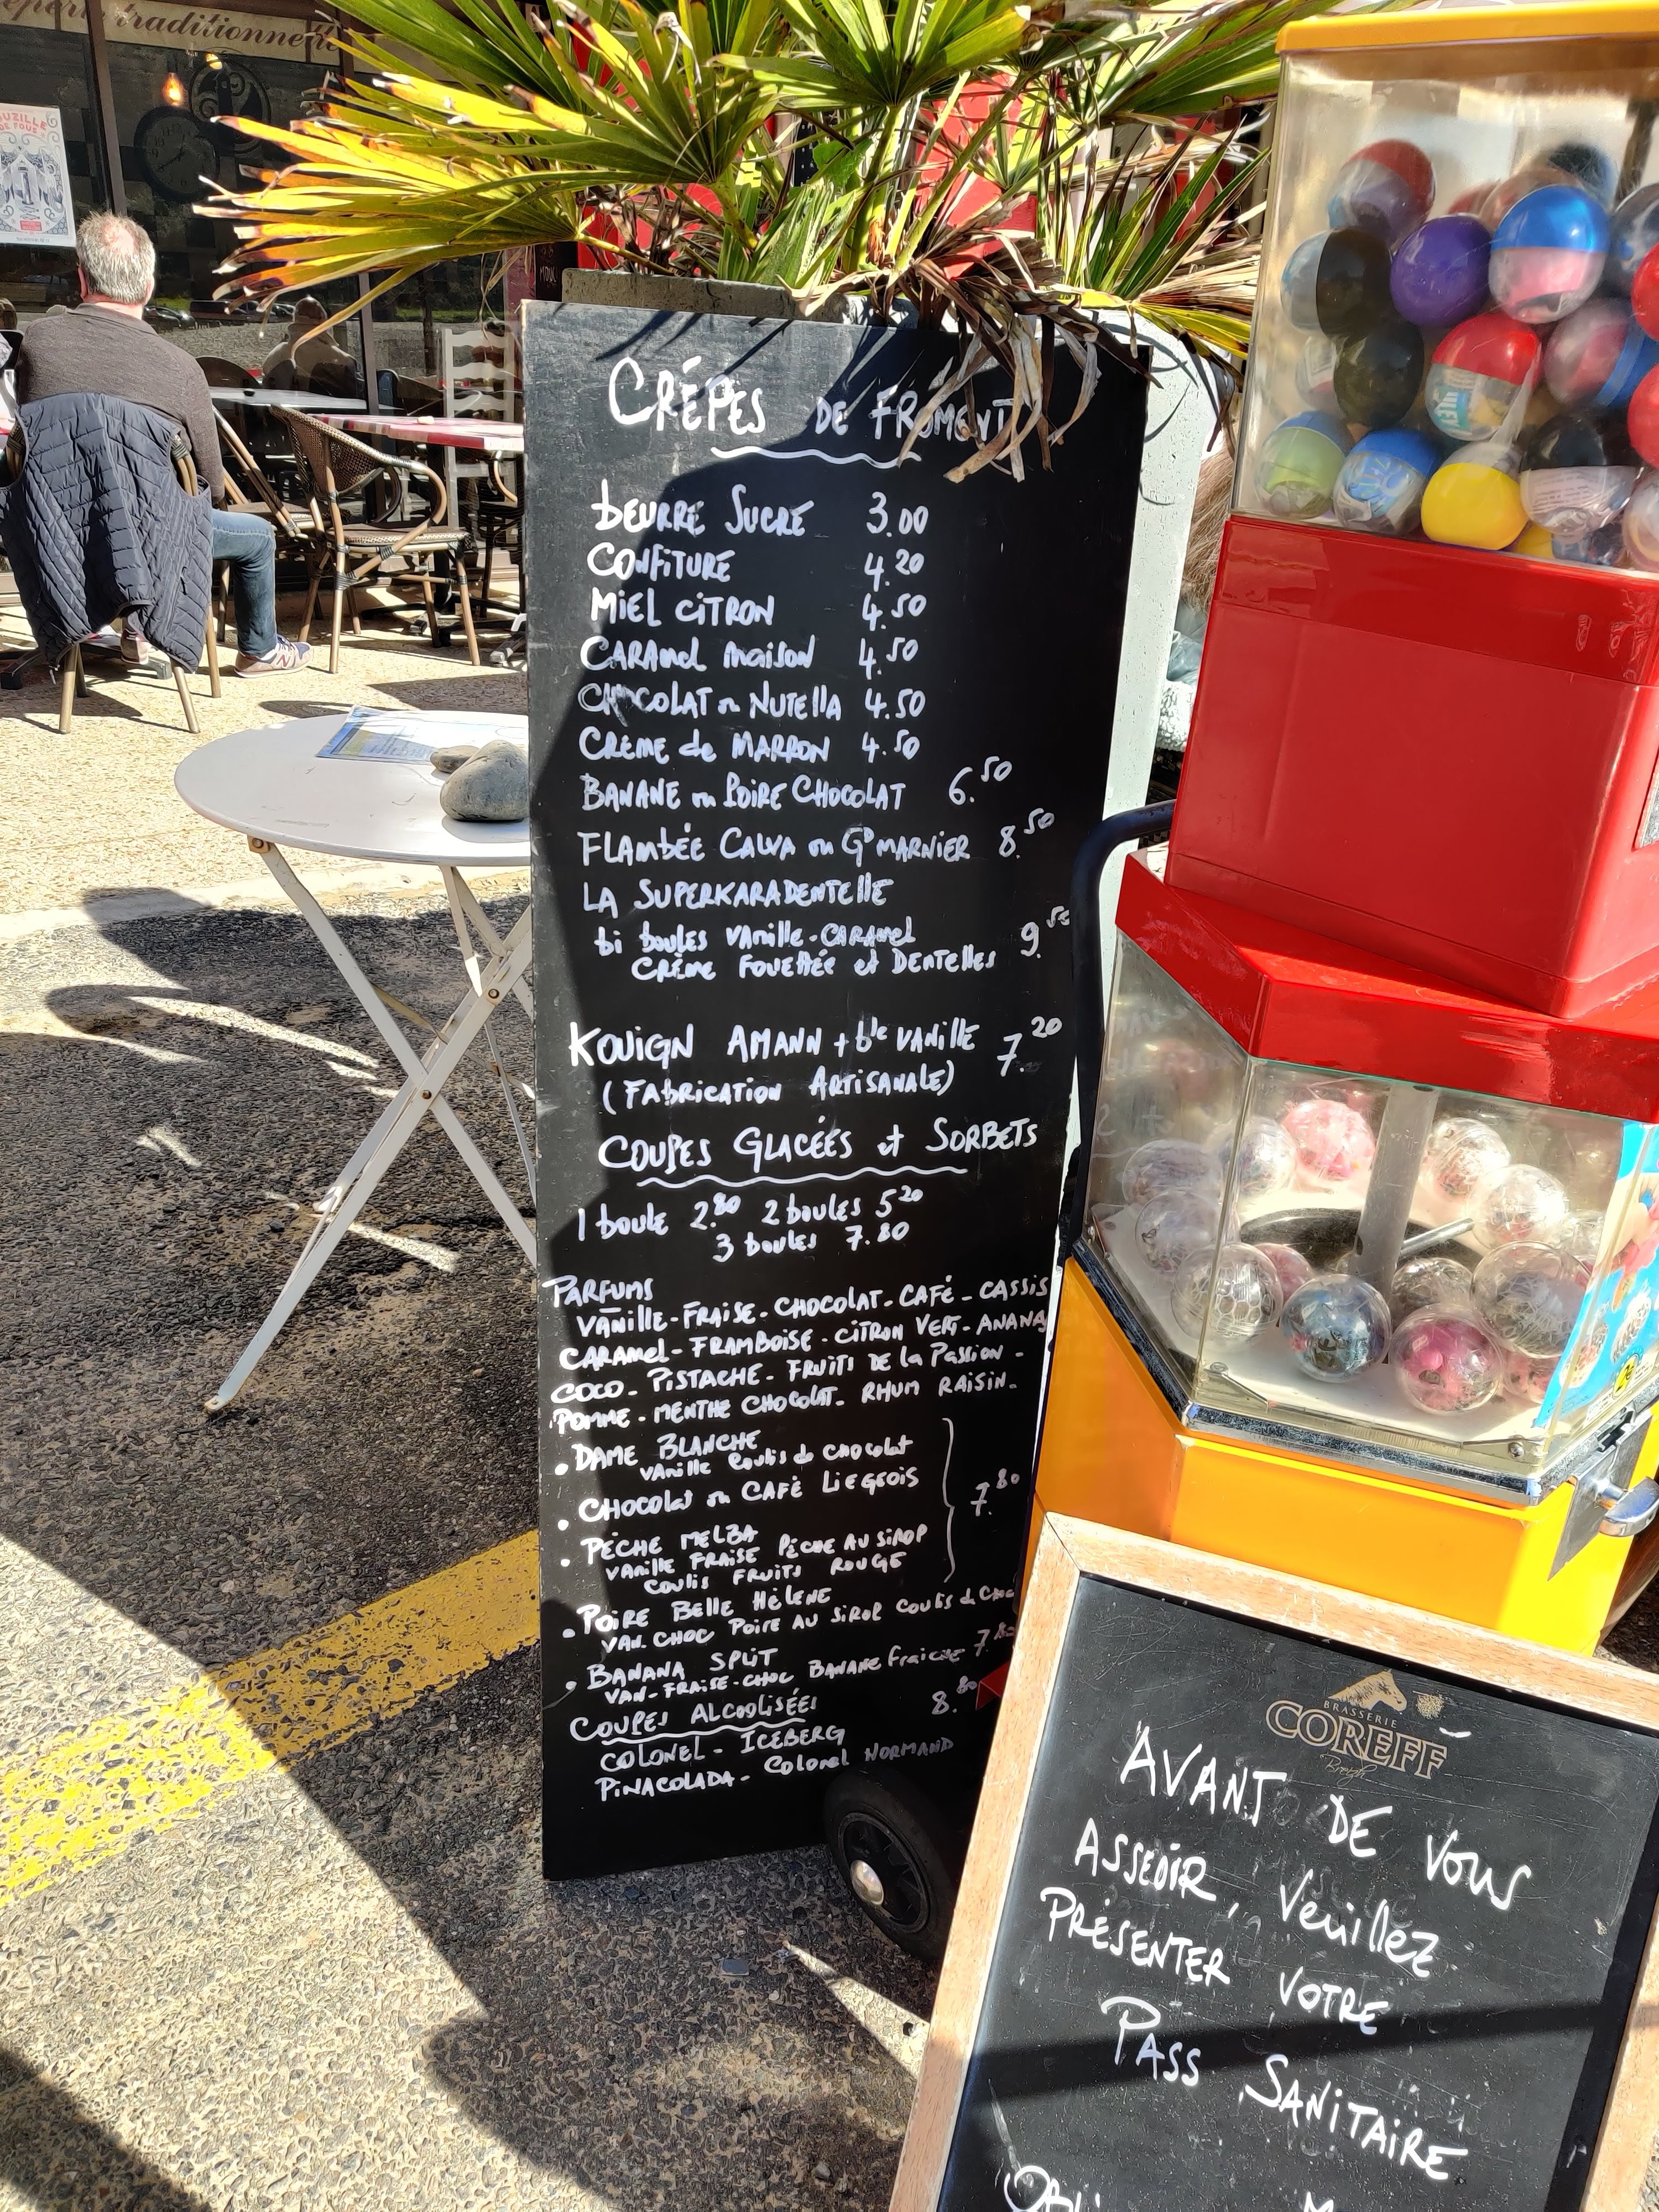 traditionnelle
CRÊPES DE FROMENT
beurre Sucre 3.00
CONFITURE 4.20
MIEL CITRON 4.50
CARAMEL maison 4.50
CHOCOLAT ou NUTELLA 4.50
CRÈME de MARRON 4.50
BANANE ou POIRE CHOCOLAT 6.50
FLAMBÉE CALVA ou Gd MARNIER 8.50
LA SUPERKARADENTELLE
bi boules vanille-CARAMEL
CRÈME FOUETTÉE et DENTELLES 9.50
KOUIGN AMANN + ble VANILLE 7.20
(FABRICATION ARTISANALE)
COUPES GLACÉES et SORBETS
1 boule 2.80 2 boules 5.20
3 boules 7.80
PARFUMS
VANILLE-FRAISE-CHOCOLAT-CAFÉ-CASSIS
CARAMEL-FRAMBOISE-CITRON VERT-ANANAS
COCO-PISTACHE-FRUITS DE la PASSION-
POMME-MENTHE CHOCOLAT-RHUM RAISIN-
. DAME BLANCHE
vanille Coulis de chocolat
. CHOCOLAT ou CAFÉ LIEGEOIS 7.80
. PÊCHE MELBA
VANILLE FRAISE PÊCHE AU SIROP
COULIS FRUITS ROUGE
. POIRE BELLE HÉLÈNE
VAN. CHOC POIRE AU SIROP COULIS de Choc
. BANANA SPLIT 7.80
VAN-FRAISE-CHOC BANANE fraiche
COUPES ALCOOLISÉES 8.80
COLONEL - ICEBERG
PINACOLADA - Colonel NORMAND
BRASSERIE
COREFF
AVANT DE VOUS
ASSEOIR, Veuillez
PRÉSENTER VOTRE
PASS SANITAIRE